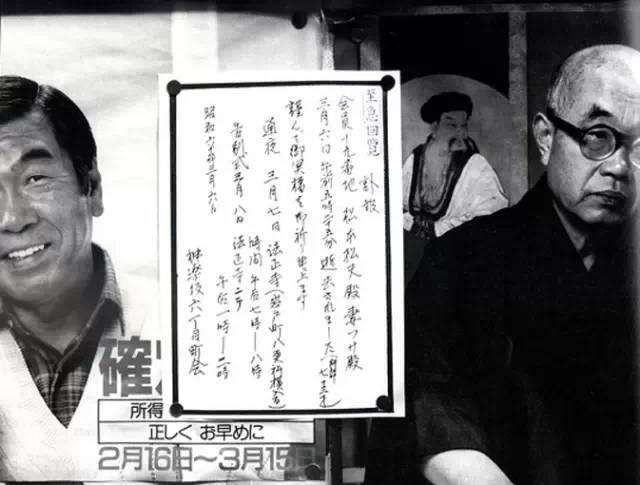 至急回覧　訃報
会員十九番地　松本松夫殿妻つや殿
三月六日　午前五時二五分　逝去されました
謹んで御冥福を御祈り申上ます
通夜　三月七日　法正寺
時間　午后七時―八時
告別式　三月八日　法正寺ニテ
午后一時―二時
昭和六十年三月六日
神楽坂六丁目町会
確
所得
正しく お早めに
2月16日～3月15日